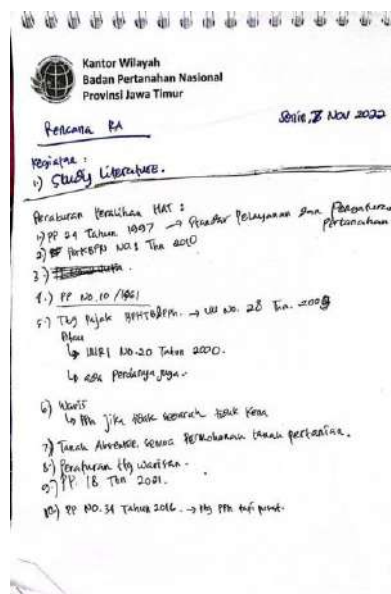 Kantor Wilayah
Badan Pertanahan Nasional
Provinsi Jawa Timur
Senin, 7 Nov 2022
Rencana RA
Kegiatan :
1.) Study Literature.
Peraturan Peralihan HAT :
1) PP 24 Tahun 1997 → Standar Pelayanan dan Pengaturan Pertanahan
2) PerKBPN NO.1 Thn 2010
3.)
4.) PP NO.10 /1961
5.) Ttg Pajak BPHTB&PPh. → UU No. 28 Tn. 2009
↳ No.20 Tahun 2000.
↳ ada Perdanya juga.
6) Waris
↳ PPh Jika tidak searah tidak kena
7) Tanah Absentee, semua Permohonan tanah pertanian.
8.) Peraturan ttg warisan.
9.) PP. 18 Thn 2021.
10.) PP NO.34 Tahun 2016. → ttg PPh tapi pusat.